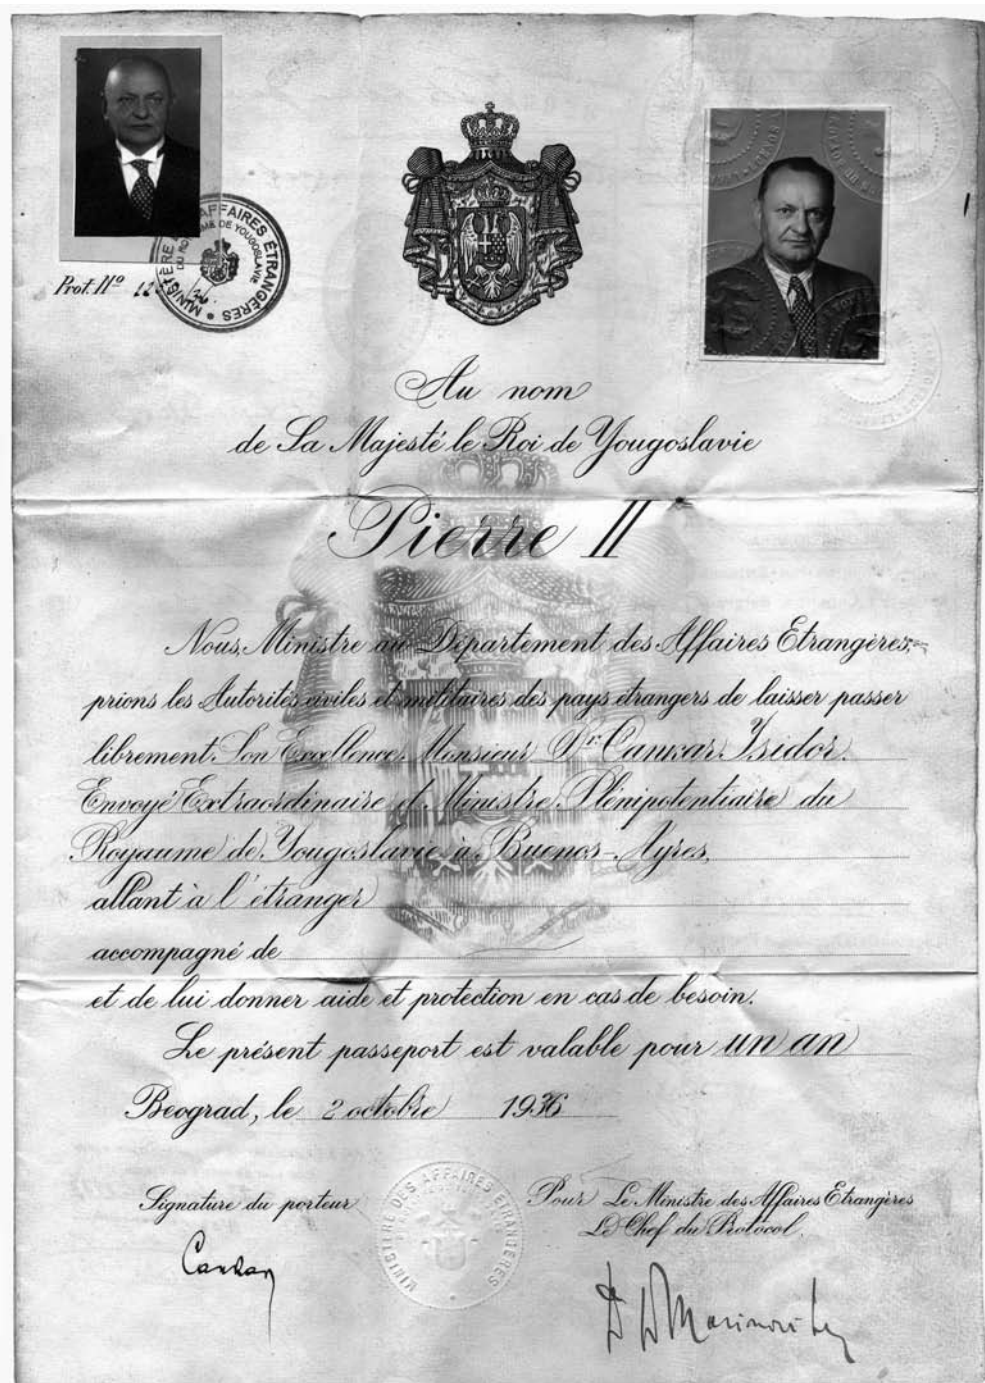 Prot. Nº
MINISTÈRE AFFAIRES ÉTRANGÈRES
DE YOUGOSLAVIE
Au nom
de Sa Majesté le Roi de Yougoslavie
Pierre II
Nous, Ministre au Département des Affaires Etrangères,
prions les Autorités civiles et militaires des pays étrangers de laisser passer
librement Son Excellence, Monsieur Dr. Cankar Isidor.
Envoyé Extraordinaire et Ministre Plénipotentiaire du
Royaume de Yougoslavie à Buenos-Ayres,
allant à l'étranger
accompagné de
et de lui donner aide et protection en cas de besoin.
Le présent passeport est valable pour un an
Beograd, le 2 octobre 1936
Signature du porteur
Pour Le Ministre des Affaires Etrangères
Le Chef du Protocol,
MINISTÈRE DES AFFAIRES ETRANGÈRES
Cankar